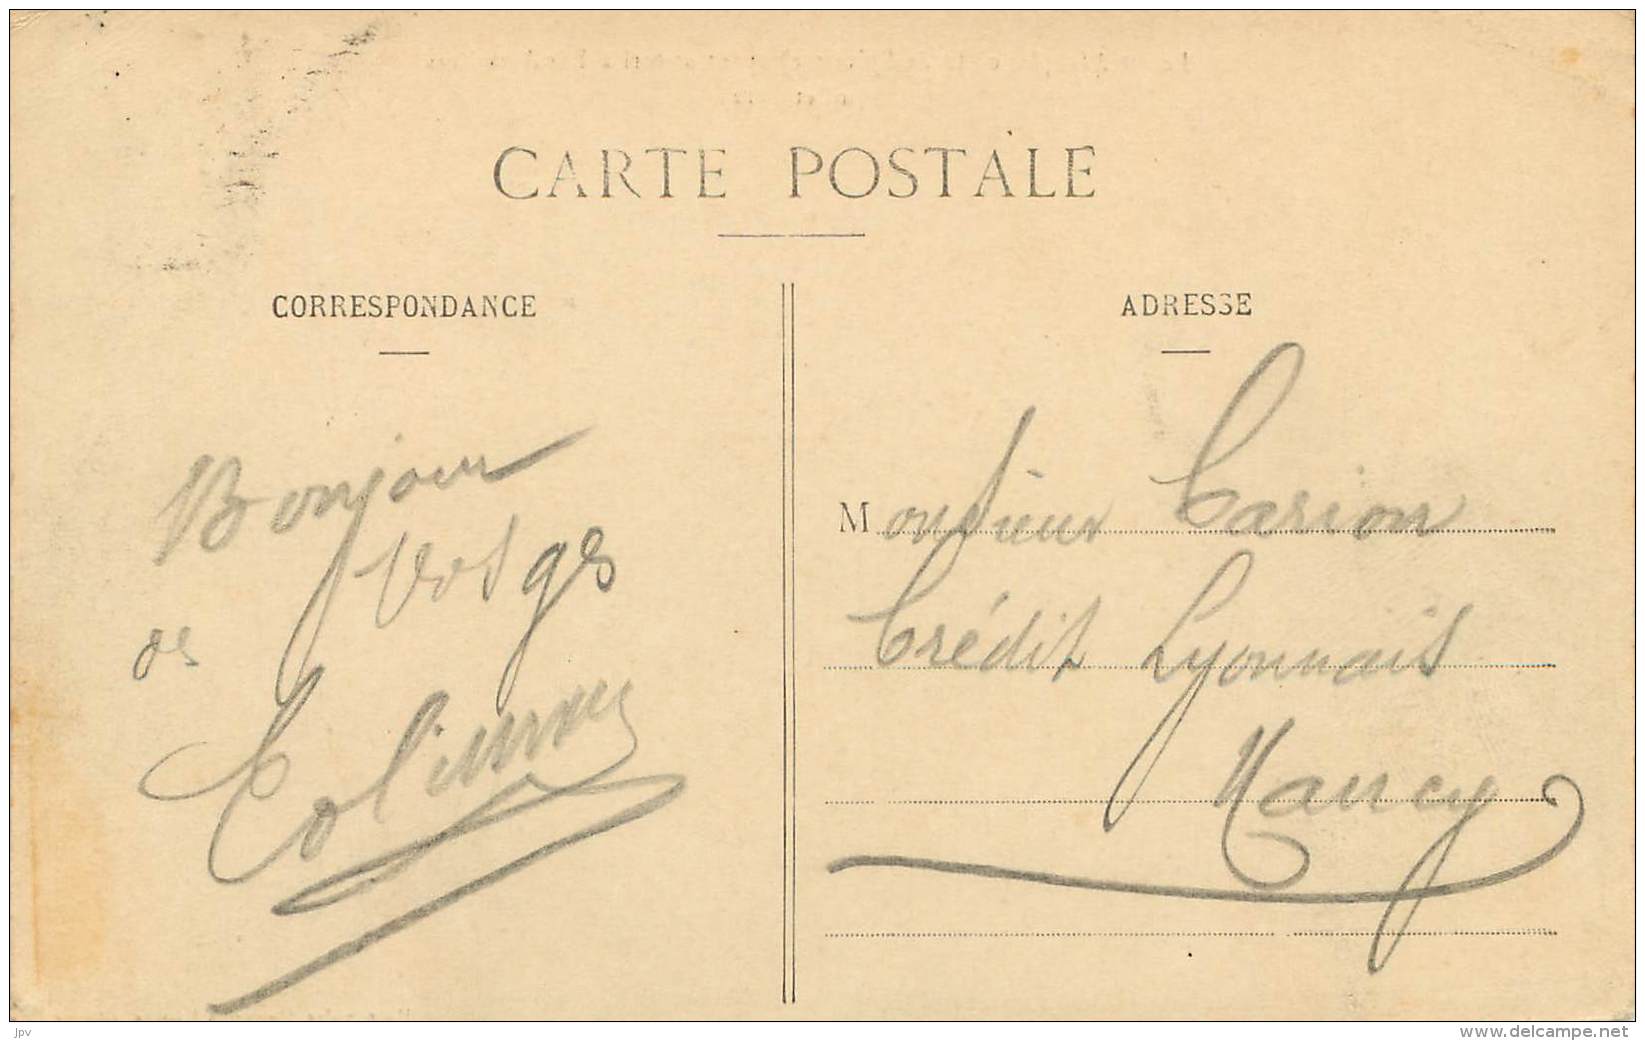 CARTE POSTALE
CORRESPONDANCE
Bonjour
Vosges
des
ADRESSE
Monsieur Carion
Crédit Lyonnais
Nancy
jpv
www.delcampe.net